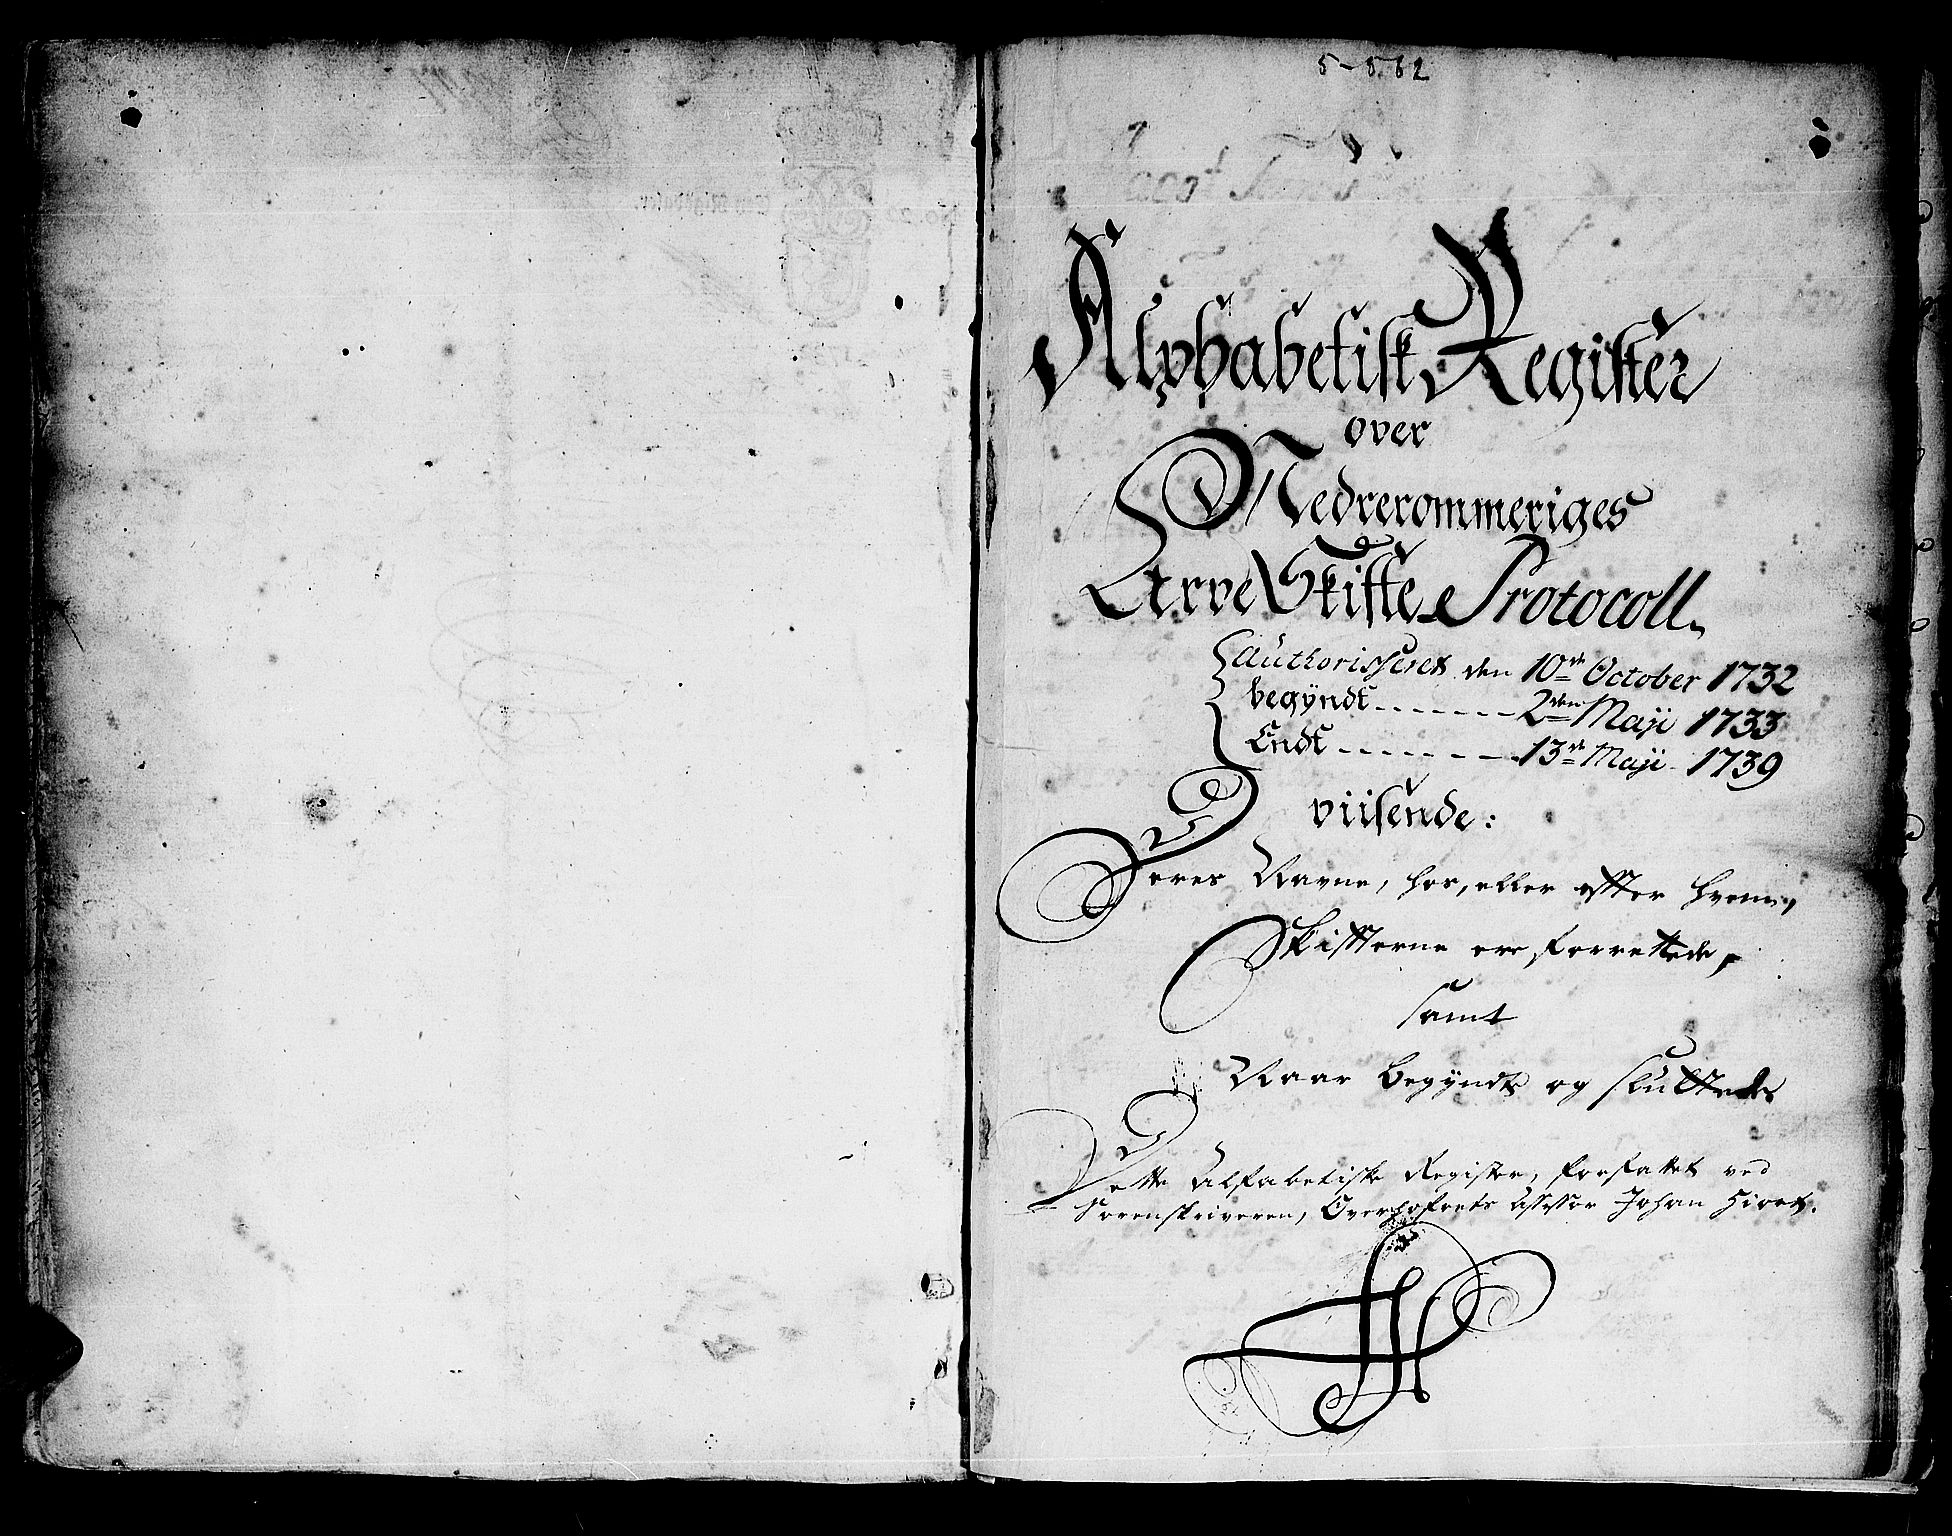 5-562
Alphabetisk Register
over
Nedrerommeriges
Arve Skifte Protocoll.
Authorisseret den 10de October 1732
begÿndt - - - - - - - 2den Maji 1733
Endt - - - - - - - 13de Maji 1739
viisende:
Deres Navne, hos, eller effter hvem,
Skiffterne ere forrettede,
samt
Naar begÿndt og sluttede
Dette Alfabetiske Register, forfattet ved
Sorenskriveren, Overhofrets Assessor Johan Hiort.